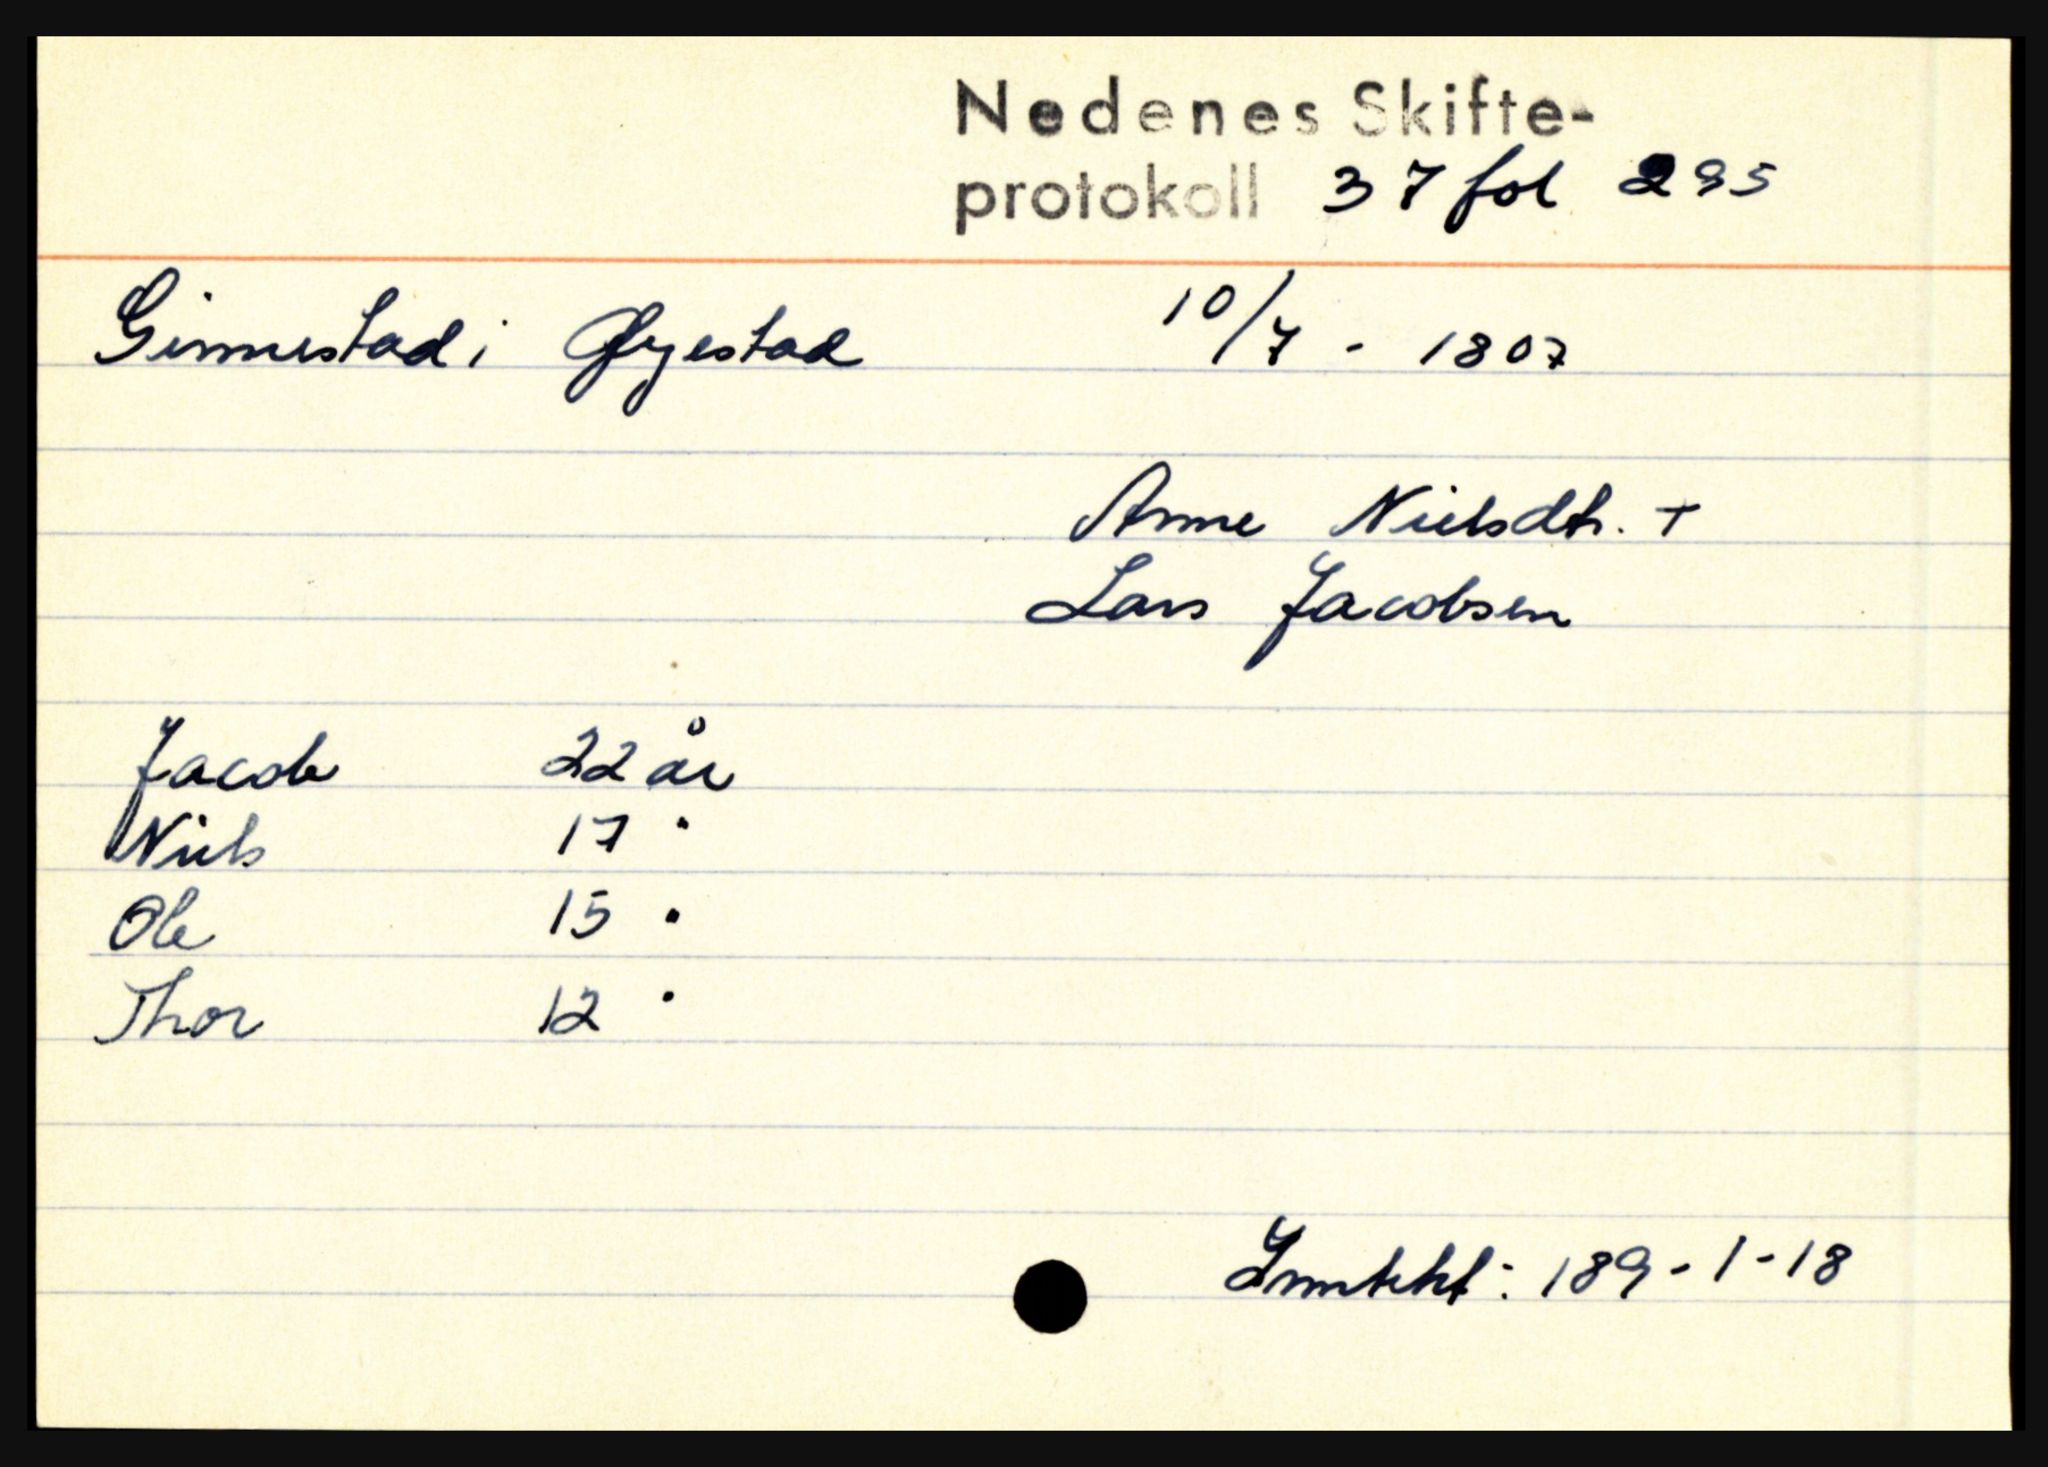 Nedenes Skifte-
protokoll 37 fol 295
Ginnestad i Øyestad 10/7 - 1807
Anne Nielsdtr. +
Lars Jacobsen
Jacob 22 år
Niels 17 "
Ole 15 "
Thor 12 "
Inntekt: 189-1-18